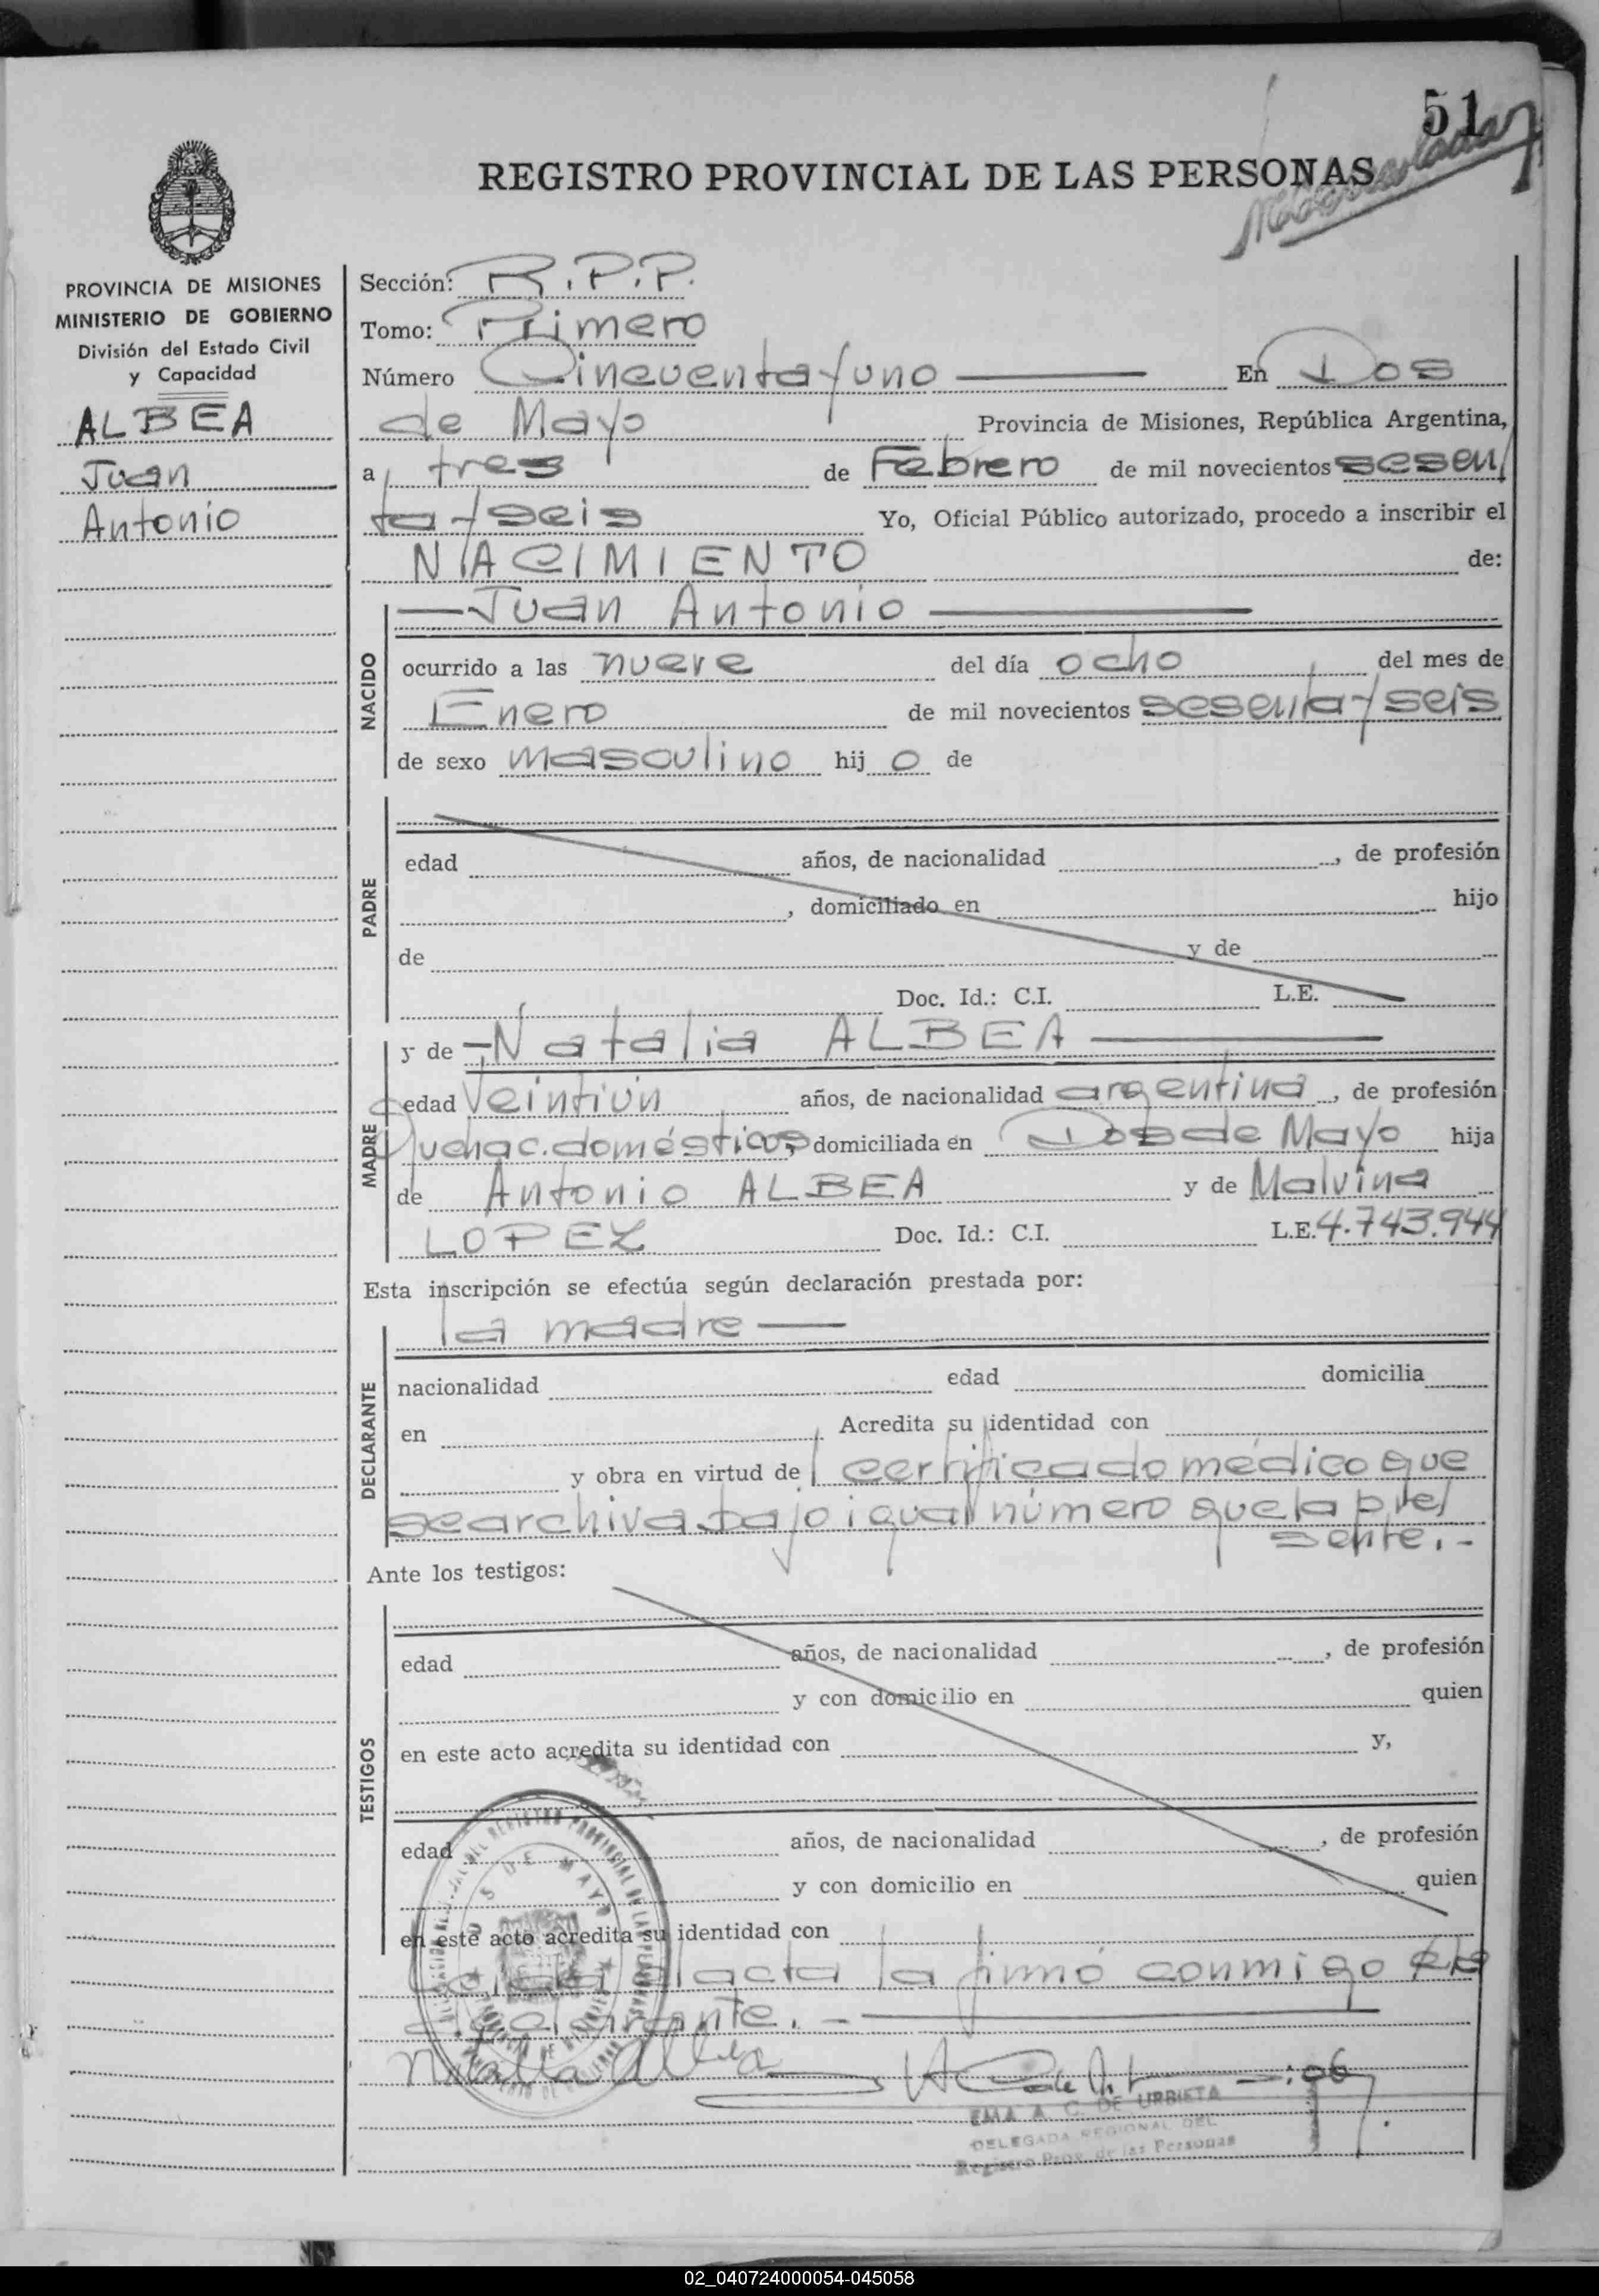 51
REGISTRO PROVINCIAL DE LAS PERSONAS
PROVINCIA DE MISIONES
MINISTERIO DE GOBIERNO
División del Estado Civil
y Capacidad
ALBEA
Juan
Antonio
Sección: R.P.P.
Tomo: Primero
Número Cincuenta y uno En Dos
de Mayo Provincia de Misiones, República Argentina,
a tres de Febrero de mil novecientos sesen
ta y seis Yo, Oficial Público autorizado, procedo a inscribir el
NACIMIENTO de:
NACIDO
Juan Antonio
ocurrido a las nueve del día ocho del mes de
Enero de mil novecientos sesenta y seis
de sexo masculino hij o de
PADRE
edad años, de nacionalidad , de profesión
, domiciliado en hijo
de y de
Doc. Id.: C.I. L.E.
MADRE
y de Natalia ALBEA
edad Veintiún años, de nacionalidad argentina , de profesión
Quehac. domésticos, domiciliada en Dos de Mayo hija
de Antonio ALBEA y de Malvina
LOPEZ Doc. Id.: C.I. L.E. 4.743.944
Esta inscripción se efectúa según declaración prestada por:
DECLARANTE
la madre
nacionalidad edad domicilia
en Acredita su identidad con
y obra en virtud de certificado médico que
se archiva bajo igual número que la pre
sente.-
Ante los testigos:
TESTIGOS
edad años, de nacionalidad , de profesión
y con domicilio en quien
en este acto acredita su identidad con y,
edad años, de nacionalidad , de profesión
y con domicilio en quien
en este acto acredita su identidad con
Leída el acta la firmó conmigo la
declarante.-
Natalia Albea
EMA A. C. DE URBIETA
DELEGADA REGIONAL DEL
Registro Prov. de las Personas
02_040724000054-045058